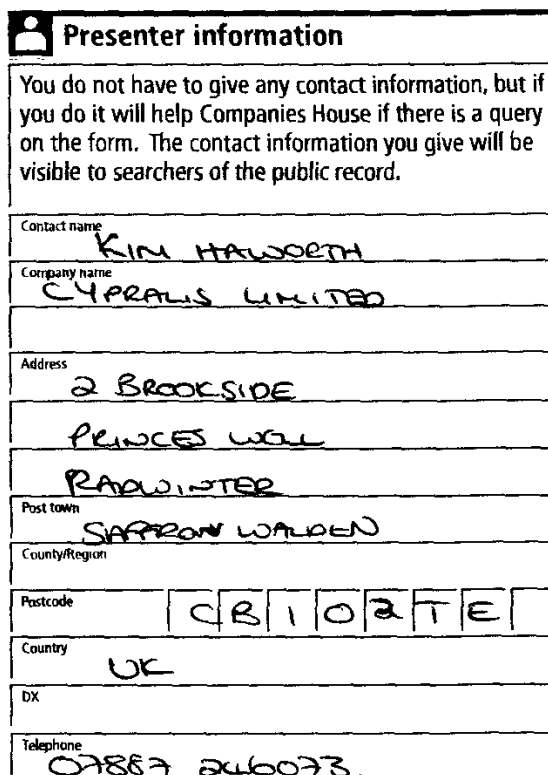 Presenter information
You do not have to give any contact information, but if
you do it will help Companies House if there is a query
on the form. The contact information you give will be
visible to searchers of the public record.
Contact name
KIM HAWORTH
Company name
CYPRALIS LIMITED
Address
2 BROOKSIDE
PRINCES WELL
RADWINTER
Post town
SAFFRON WALDEN
County/Region
Postcode
CB10 2TE
Country
UK
DX
Telephone
07887 246073